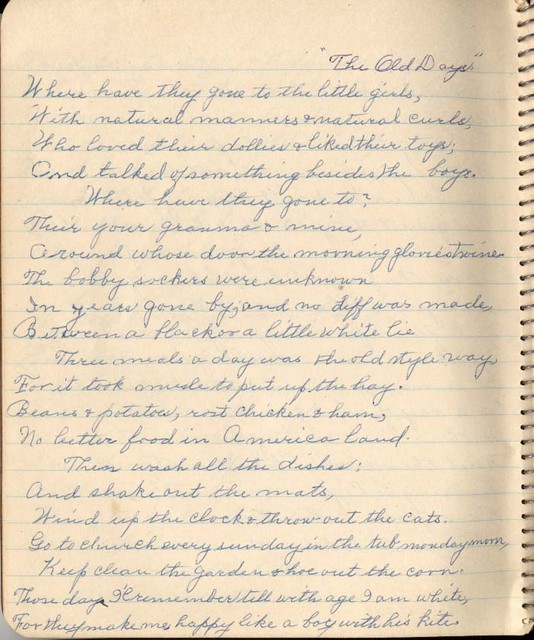 "The Old Days"
Where have they gone to the little girls,
With natural manners & natural curls,
Who loved their dollies & liked their toys;
And talked of something besides the boys.
Where have they gone to?
Their your granma & mine,
Around whose door the morning glories twine.
The bobby sockers were unknown
In years gone by, and no diff was made
Between a black or a little white lie
Three meals a day was the old style way
For it took muscle to put up the hay.
Beans & potatoes, rost chicken & ham,
No better food in America land.
Then wash all the dishes;
And shake out the mats,
Wind up the clock & throw out the cats.
Go to church every sunday in the tub monday morn,
Keep clean the garden & hoe out the corn.
Those days I remember till with age I am white,
For they make me happy like a boy with his kite.